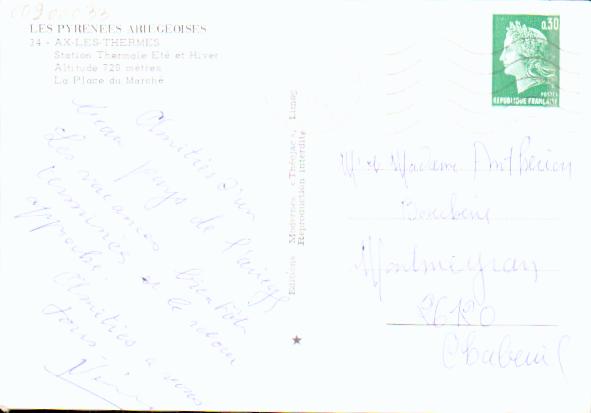 00200033
LES PYRENEES ARIEGEOISES
34 - AX-LES-THERMES
Station Thermale Eté et Hiver
Altitude 720 mètres
La Place du Marché
Amitiés d'un
beau pays de l'ariège
Les vacances bientôt
terminées et le retour
approche.
Amitiés a vous
tous
Editions Modernes « Théojac », Limoges
Reproduction interdite
0,30
POSTES
REPUBLIQUE FRANÇAISE
Mr et Madame
Montmeyran
26120
Chabeuil